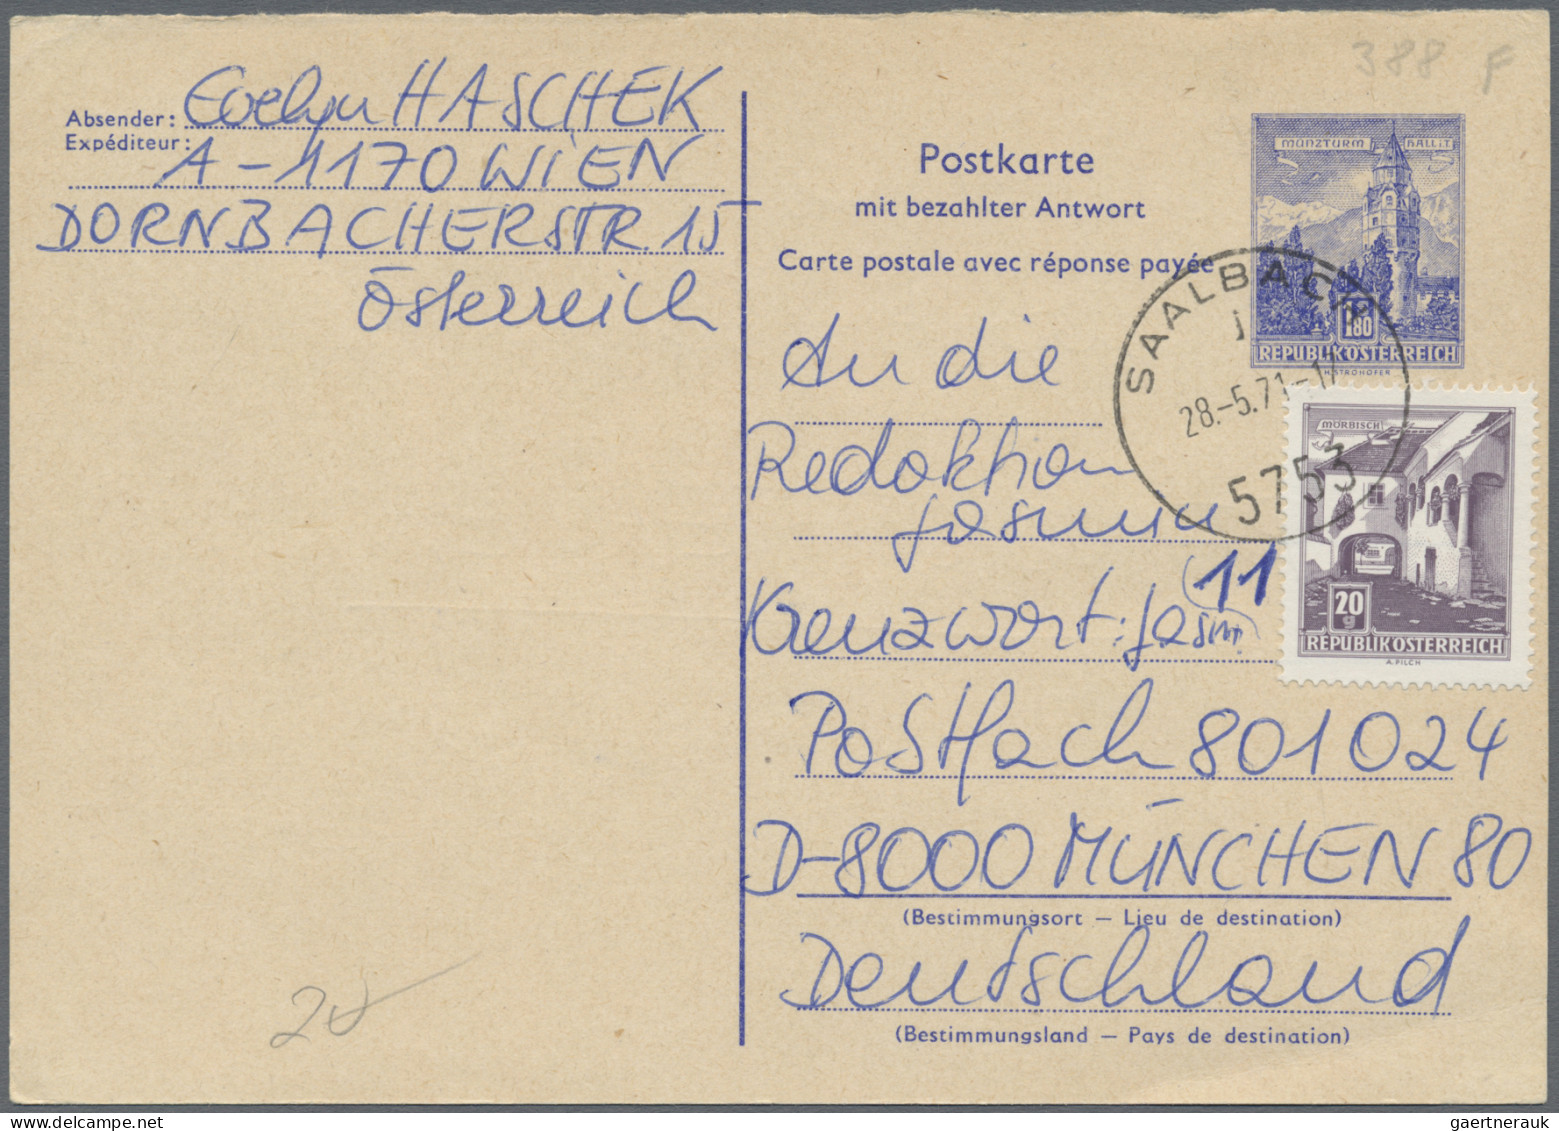 388 F
Absender: Evelyn HASCHEK
Expéditeur:
A-1170 WIEN
DORNBACHERSTR. 15
Österreich
Postkarte
mit bezahlter Antwort
Carte postale avec réponse payée
MÜNZTURM HALL i.T.
1.80
REPUBLIK ÖSTERREICH
H. STROHOFER
SAALBACH
28.-5.71-1
5753
MÖRBISCH
20
g
REPUBLIK ÖSTERREICH
A. PILCH
An die
Redaktion
Jasmin
11
Kenzwort: Jasmin
Postfach 801024
D-8000 MÜNCHEN 80
(Bestimmungsort — Lieu de destination)
Deutschland
(Bestimmungsland — Pays de destination)
gaertnerauk